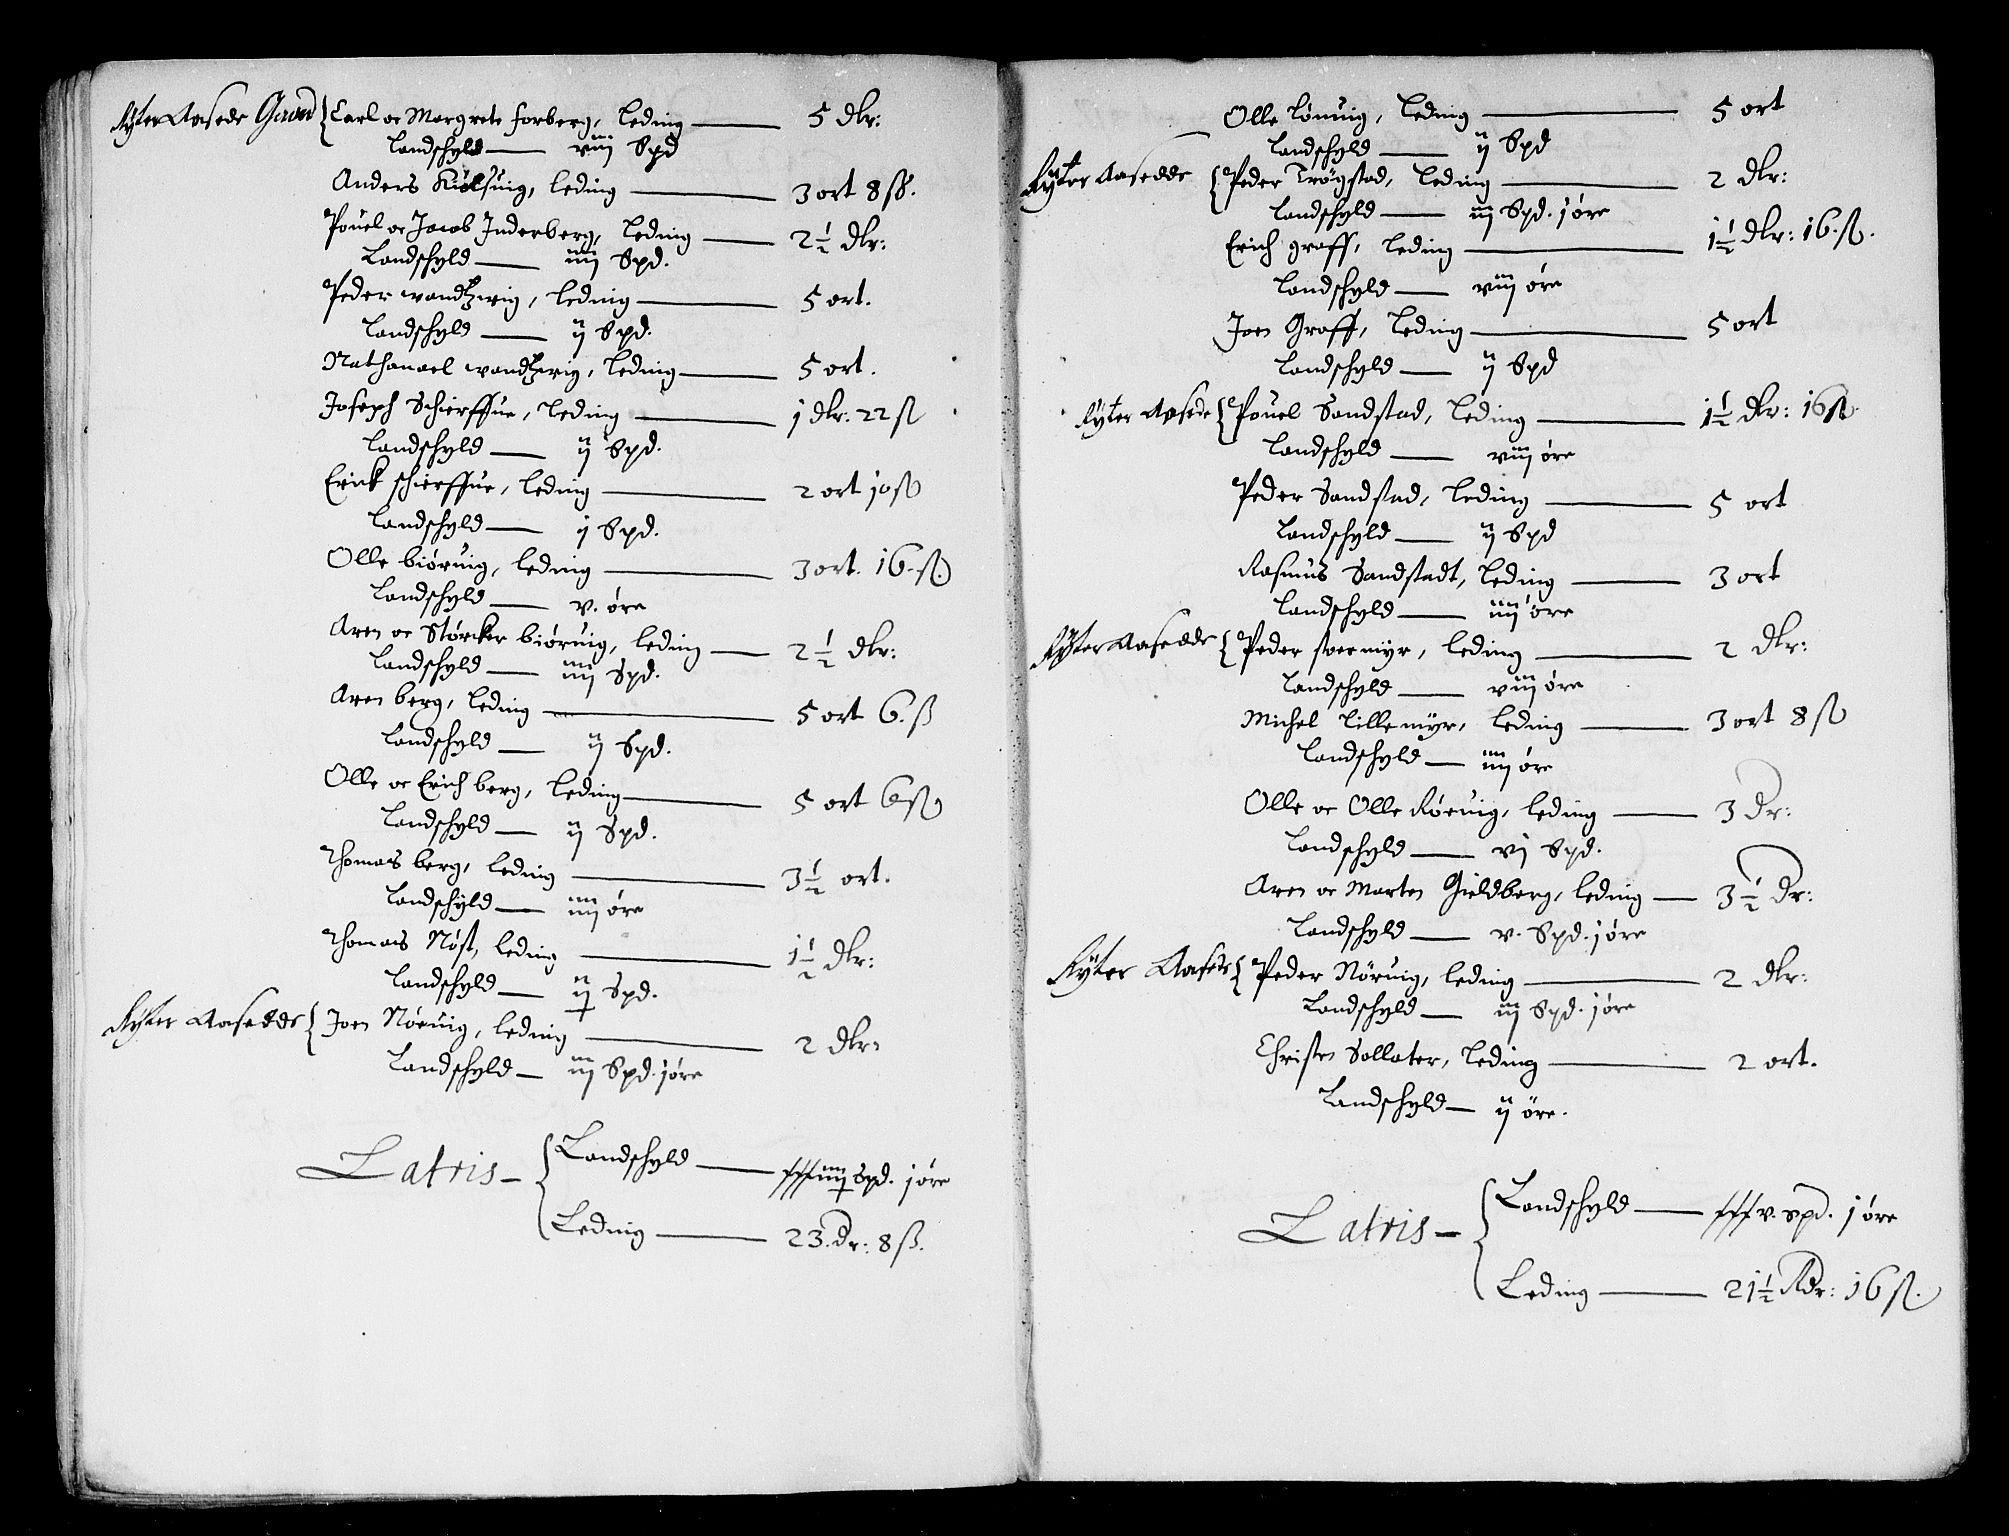 Ryter Aasede Gaard { Carl oc Margrete forberg, leding — 5 dlr:
Landschyld — viij Spd
Anders Kiølsuig, leding — 3 ort 8 ss.
Pouel oc Jacob Inderberg, leding — 2½ dlr:
Landschyld — iiij Spd.
Peder wandtzwig, leding — 5 ort.
Landschyld — ij Spd.
Nathanael wandtzwig, leding — 5 ort.
Joseph Schierffue, leding — j dlr: 22 ß
Landschyld — ij Spd.
Erick schierffue, leding — 2 ort 10 ß
Landschyld — j Spd.
Olle biøruig, leding — 3 ort. 16. ß.
Landschyld — v. øre
Aren oc Størcker biøruig, leding — 2½ dlr:
Landschyld — iiij Spd.
Aren berg, leding — 5 ort 6. ß
Landschyld — ij Spd.
Olle oc Erich berg, leding — 5 ort 6 ß
Landschyld — ij Spd.
Thomas berg, leding — 3½ ort.
Landschyld — iiij øre
Thomas Nøst, leding — 1½ dlr:
Landschyld — ij Spd.
Ryter Aasedde { Joen Nøeuig, leding — 2 dlr:
Landschyld — iij Spd. j øre
Latris — { Landschyld — xxxiiij Spd. j øre
Leding — 23. dr: 8 ß.
Olle Lønuig, leding — 5 ort
Landschyld — ij Spd
Ryter Aasedde { Peder Trøgstad, leding — 2 dlr:
Landschyld — iij Spd. j øre
Erich graff, leding — 1½ dlr: 16. ß.
Landschyld — viij øre
Joen Graff, leding — 5 ort
Landschyld — ij Spd
Ryter Aasede { Pouel Sandstad, leding — 1½ dlr: 16 ß.
Landschyld — viij øre
Peder Sandstad, leding — 5 ort
Landschyld — ij Spd
Rasmus Sandstadt, leding — 3 ort
Landschyld — iiij øre
Ryter Aasedde { Peder stoermyr, leding — 2 dlr:
Landschyld — viij øre
Michel Lillemyr, leding — 3 ort 8 ß
Landschyld — iiij øre
Olle oc Olle Røeuig, leding — 3 dr:
Landschyld — vj Spd.
Aren oc Morten Gieldberg, leding — 3½ dr:
Landschyld — v. Spd. j øre
Ryter Aasede { Peder Nøruig, leding — 2 dlr:
Landschyld — iij Spd. j øre
Christen Sollater, leding — 2 ort.
Landschyld — ij øre.
Latris — { Landschyld — xxxv. spd. j øre
Leding — 21½ Rdr: 16 ß.